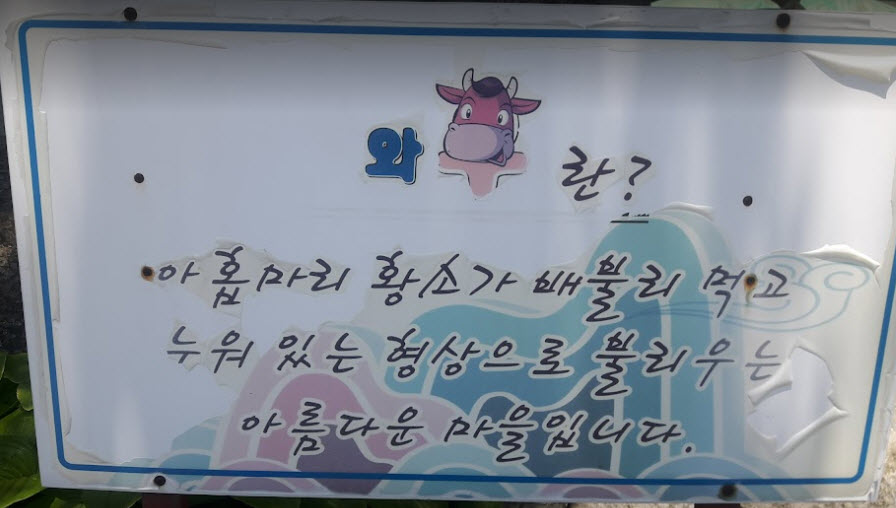 와란?
아홉마리 황소가 배불리 먹고
누워 있는 형상으로 불리우는
아름다운 마을입니다.